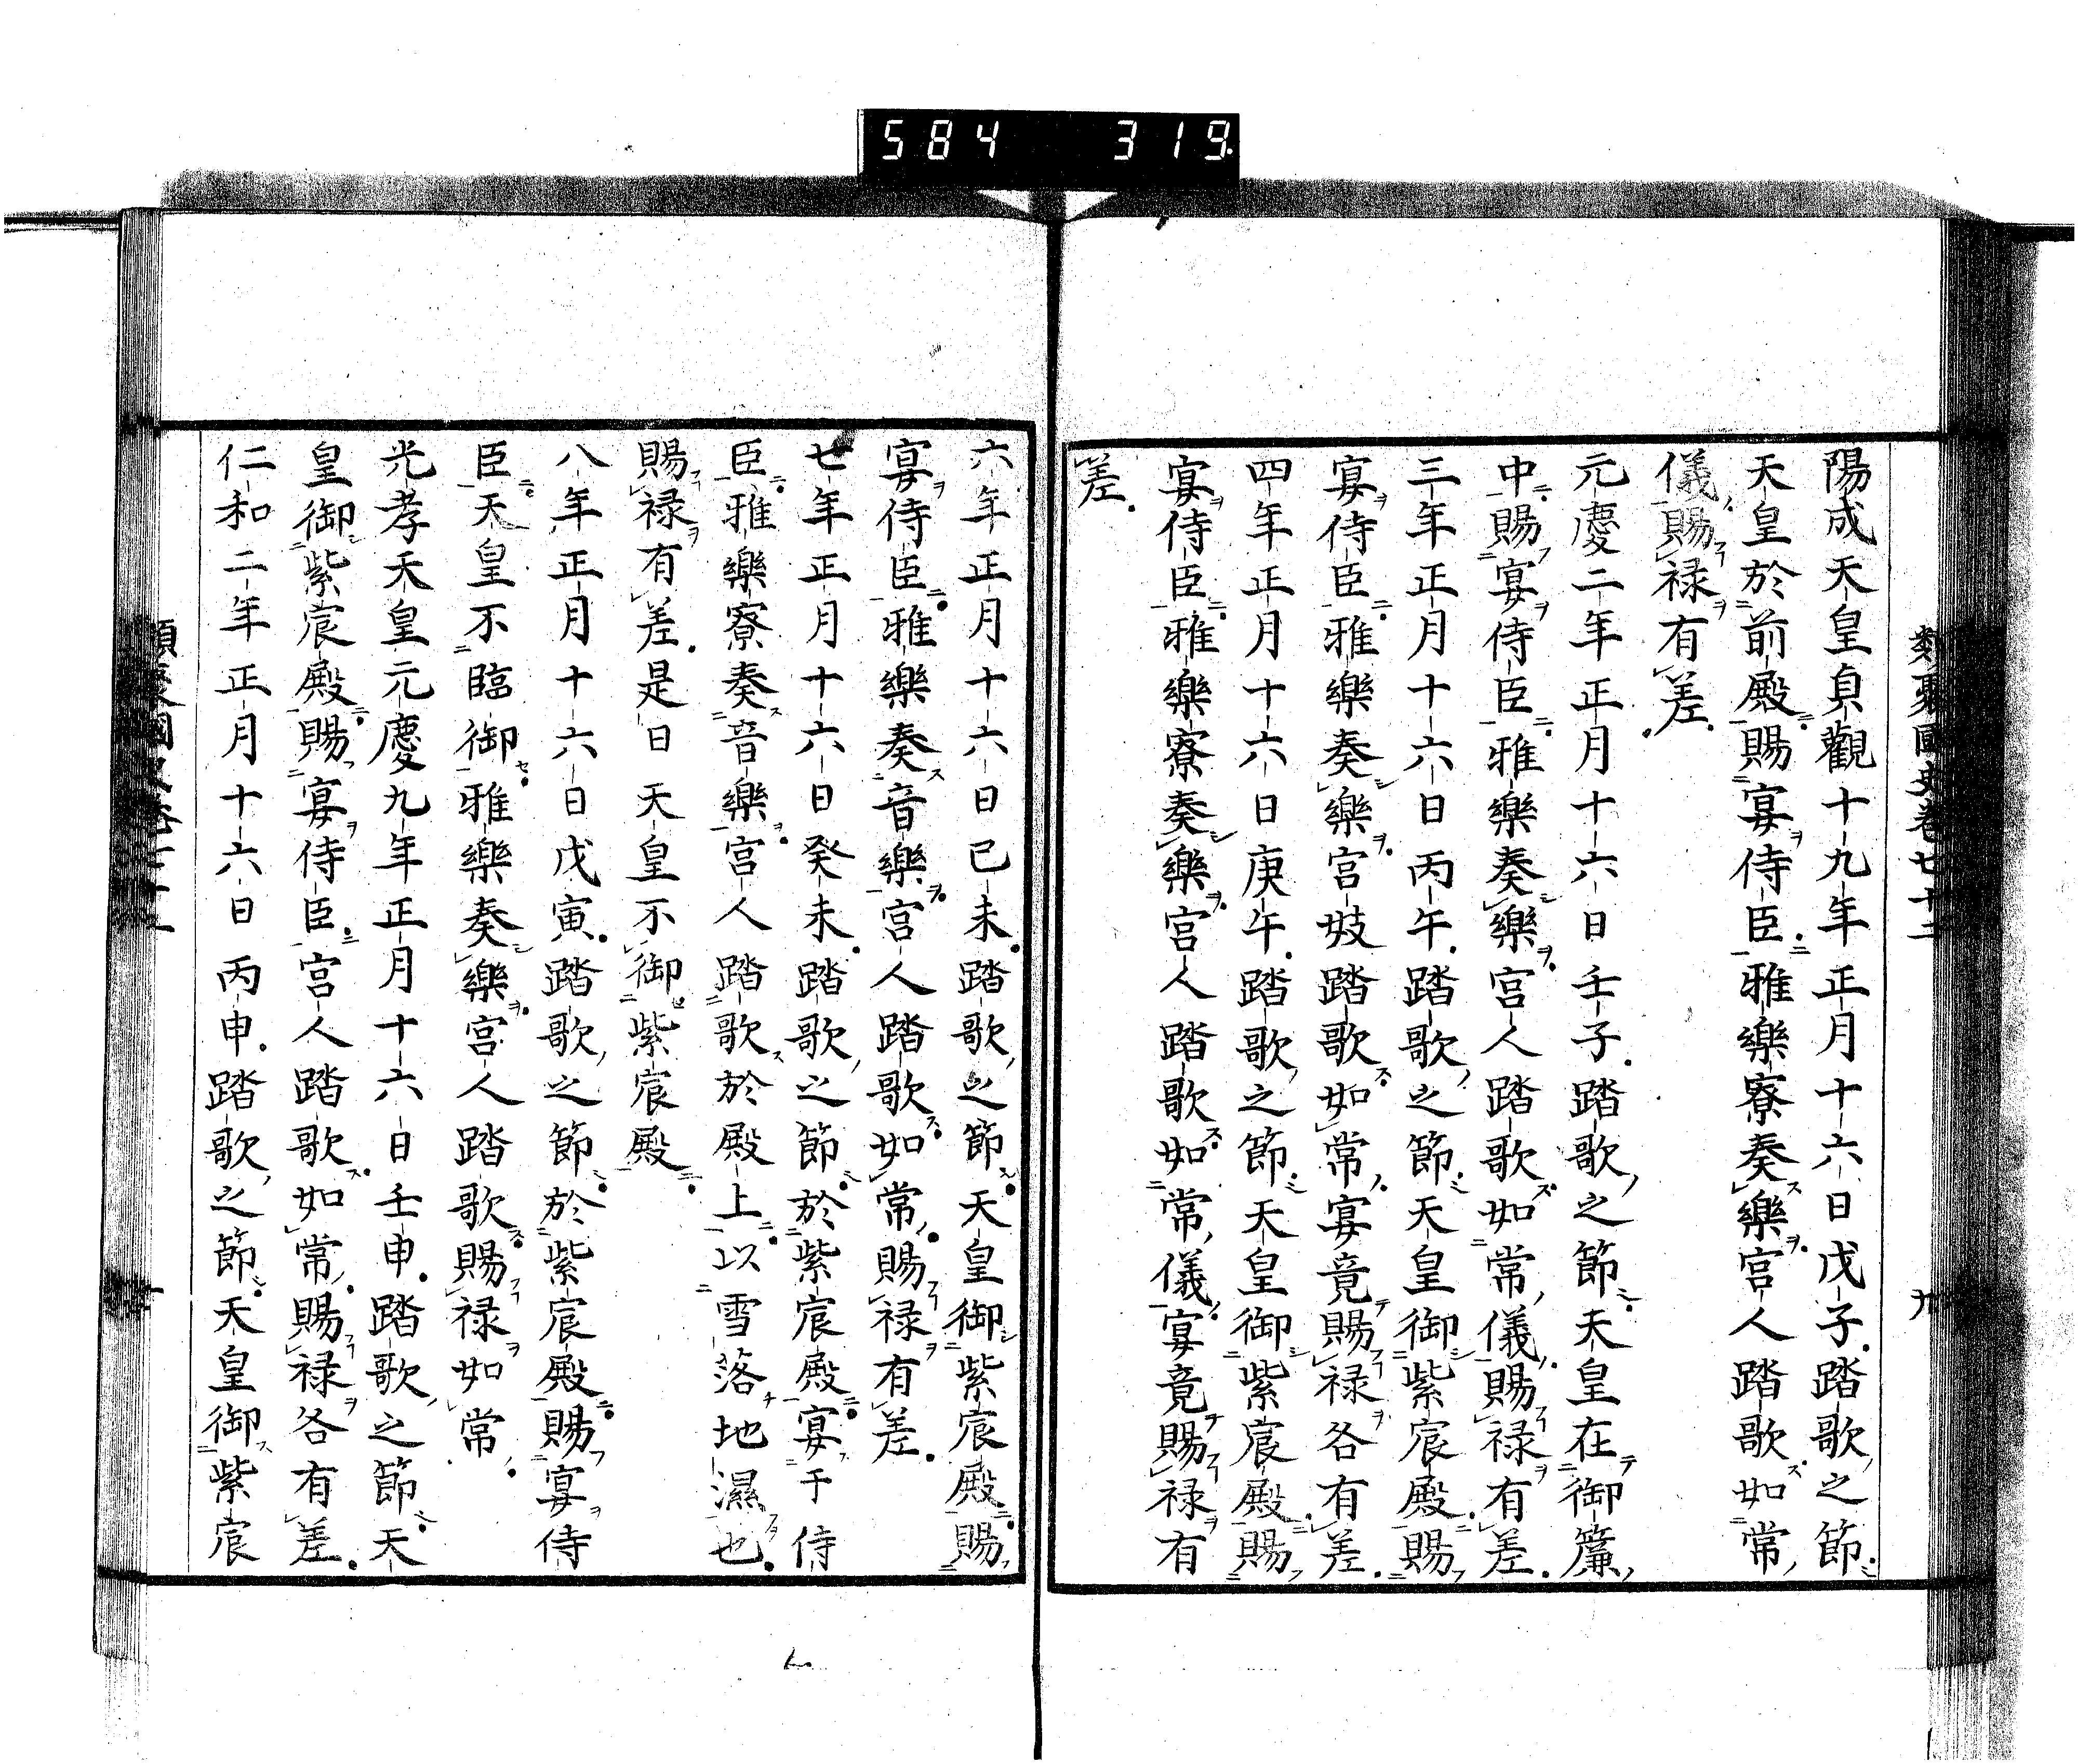 584 319
類聚國史卷七十二 九
陽成天皇貞觀十九年正月十六日戊子踏歌之節
天皇於前殿賜宴侍臣雅樂寮奏樂宮人踏歌如常
儀賜禄有差
元慶二年正月十六日壬子踏歌之節天皇在御簾
中賜宴侍臣雅樂奏樂宮人踏歌如常儀賜禄有差
三年正月十六日丙午踏歌之節天皇御紫宸殿賜
宴侍臣雅樂奏樂宮妓踏歌如常宴竟賜禄各有差
四年正月十六日庚午踏歌之節天皇御紫宸殿賜
宴侍臣雅樂寮奏樂宮人踏歌如常儀宴竟賜禄有
差
六年正月十六日己未踏歌之節天皇御紫宸殿賜
宴侍臣雅樂奏音樂宮人踏歌如常賜禄有差
七年正月十六日癸未踏歌之節於紫宸殿宴于侍
臣雅樂寮奏音樂宮人踏歌於殿上以雪落地濕也
賜禄有差是日天皇不御紫宸殿
八年正月十六日戊寅踏歌之節於紫宸殿賜宴侍
臣天皇不臨御雅樂奏樂宮人踏歌賜禄如常
光孝天皇元慶九年正月十六日壬申踏歌之節天
皇御紫宸殿賜宴侍臣宮人踏歌如常賜禄各有差
仁和二年正月十六日丙申踏歌之節天皇御紫宸